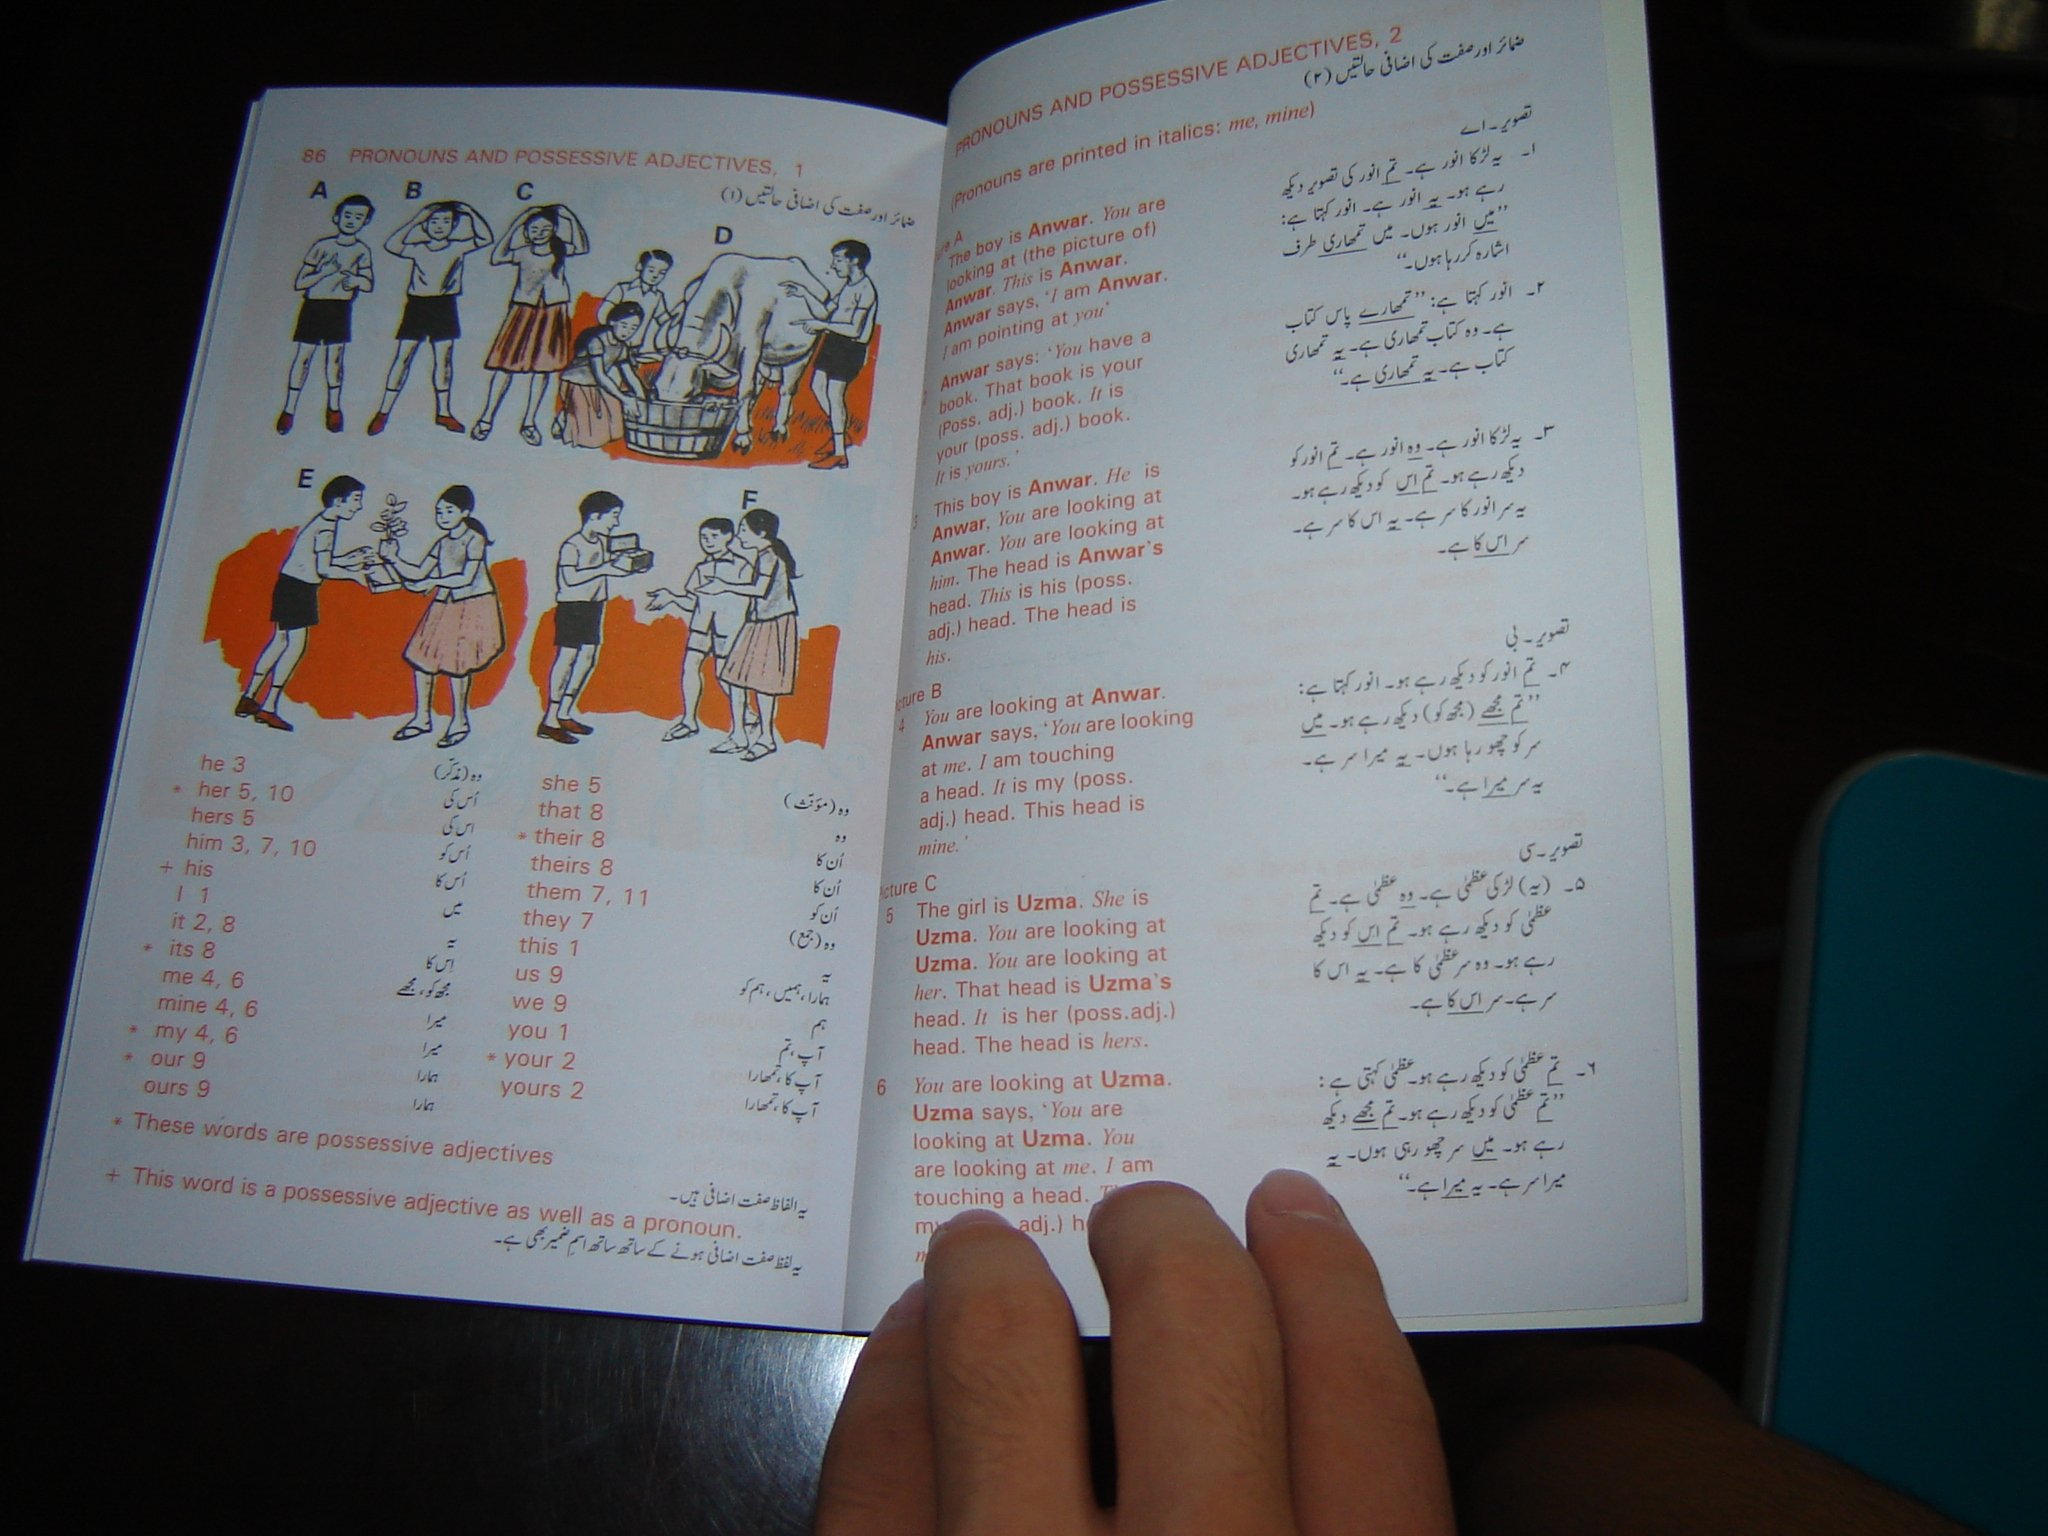 86 PRONOUNS AND POSSESSIVE ADJECTIVES, 1
ضمائر اور صفت کی اضافی حالتیں (۱)
A
B
C
D
E
F
he 3 وہ (مذکّر)
* her 5, 10 اُس کی
hers 5 اس کی
him 3, 7, 10 اُس کو
+ his اُس کا
I 1 میں
it 2, 8 یہ
* its 8 اِس کا
me 4, 6 مجھ کو، مجھے
mine 4, 6 میرا
* my 4, 6 میرا
* our 9 ہمارا
ours 9 ہمارا
she 5 وہ (مؤنث)
that 8 وہ
* their 8 اُن کا
theirs 8 اُن کا
them 7, 11 اُن کو
they 7 وہ (جمع)
this 1 یہ
us 9 ہمارا، ہمیں، ہم کو
we 9 ہم
you 1 آپ، تم
* your 2 آپ کا، تمھارا
yours 2 آپ کا، تمھارا
* These words are possessive adjectives
یہ الفاظ صفت اضافی ہیں۔
+ This word is a possessive adjective as well as a pronoun.
یہ لفظ صفت اضافی ہونے کے ساتھ ساتھ اسم ضمیر بھی ہے۔
PRONOUNS AND POSSESSIVE ADJECTIVES, 2
ضمائر اور صفت کی اضافی حالتیں (۲)
(Pronouns are printed in italics: me, mine)
A
The boy is Anwar. You are
looking at (the picture of)
Anwar. This is Anwar.
Anwar says, ‘I am Anwar.
I am pointing at you’
2 Anwar says: ‘You have a
book. That book is your
(Poss. adj.) book. It is
your (poss. adj.) book.
It is yours.’
3 This boy is Anwar. He is
Anwar, You are looking at
Anwar. You are looking at
him. The head is Anwar's
head. This is his (poss.
adj.) head. The head is
his.
B
4 You are looking at Anwar.
Anwar says, ‘You are looking
at me. I am touching
a head. It is my (poss.
adj.) head. This head is
mine.’
C
5 The girl is Uzma. She is
Uzma. You are looking at
Uzma. You are looking at
her. That head is Uzma's
head. It is her (poss.adj.)
head. The head is hers.
6 You are looking at Uzma.
Uzma says, ‘You are
looking at Uzma. You
are looking at me. I am
touching a head.
adj.)
تصویر۔ اے
۱۔ یہ لڑکا انور ہے۔ تم انور کی تصویر دیکھ
رہے ہو۔ یہ انور ہے۔ انور کہتا ہے:
”میں انور ہوں۔ میں تمھاری طرف
اشارہ کر رہا ہوں۔“
۲۔ انور کہتا ہے: ”تمھارے پاس کتاب
ہے۔ وہ کتاب تمھاری ہے۔ یہ تمھاری
کتاب ہے۔ یہ تمھاری ہے۔“
۳۔ یہ لڑکا انور ہے۔ وہ انور ہے۔ تم انور کو
دیکھ رہے ہو۔ تم اس کو دیکھ رہے ہو۔
یہ سر انور کا سر ہے۔ یہ اس کا سر ہے۔
سر اس کا ہے۔
تصویر۔ بی
۴۔ تم انور کو دیکھ رہے ہو۔ انور کہتا ہے:
”تم مجھے (مجھ کو) دیکھ رہے ہو۔ میں
سر کو چھو رہا ہوں۔ یہ میرا سر ہے۔
یہ سر میرا ہے۔“
تصویر۔ سی
۵۔ (یہ) لڑکی عظمیٰ ہے۔ وہ عظمیٰ ہے۔ تم
عظمیٰ کو دیکھ رہے ہو۔ تم اس کو دیکھ
رہے ہو۔ وہ سر عظمیٰ کا ہے۔ یہ اس کا
سر ہے۔ سر اس کا ہے۔
۶۔ تم عظمیٰ کو دیکھ رہے ہو۔ عظمیٰ کہتی ہے:
”تم عظمیٰ کو دیکھ رہے ہو۔ تم مجھے دیکھ
رہے ہو۔ میں سر چھو رہی ہوں۔ یہ
میرا سر ہے۔ یہ میرا ہے۔“